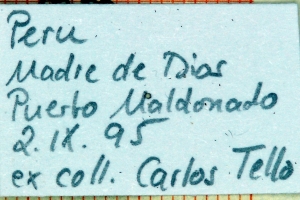 Peru
Madre de Dios
Puerto Maldonado
2.IX.95
ex coll. Carlos Tello